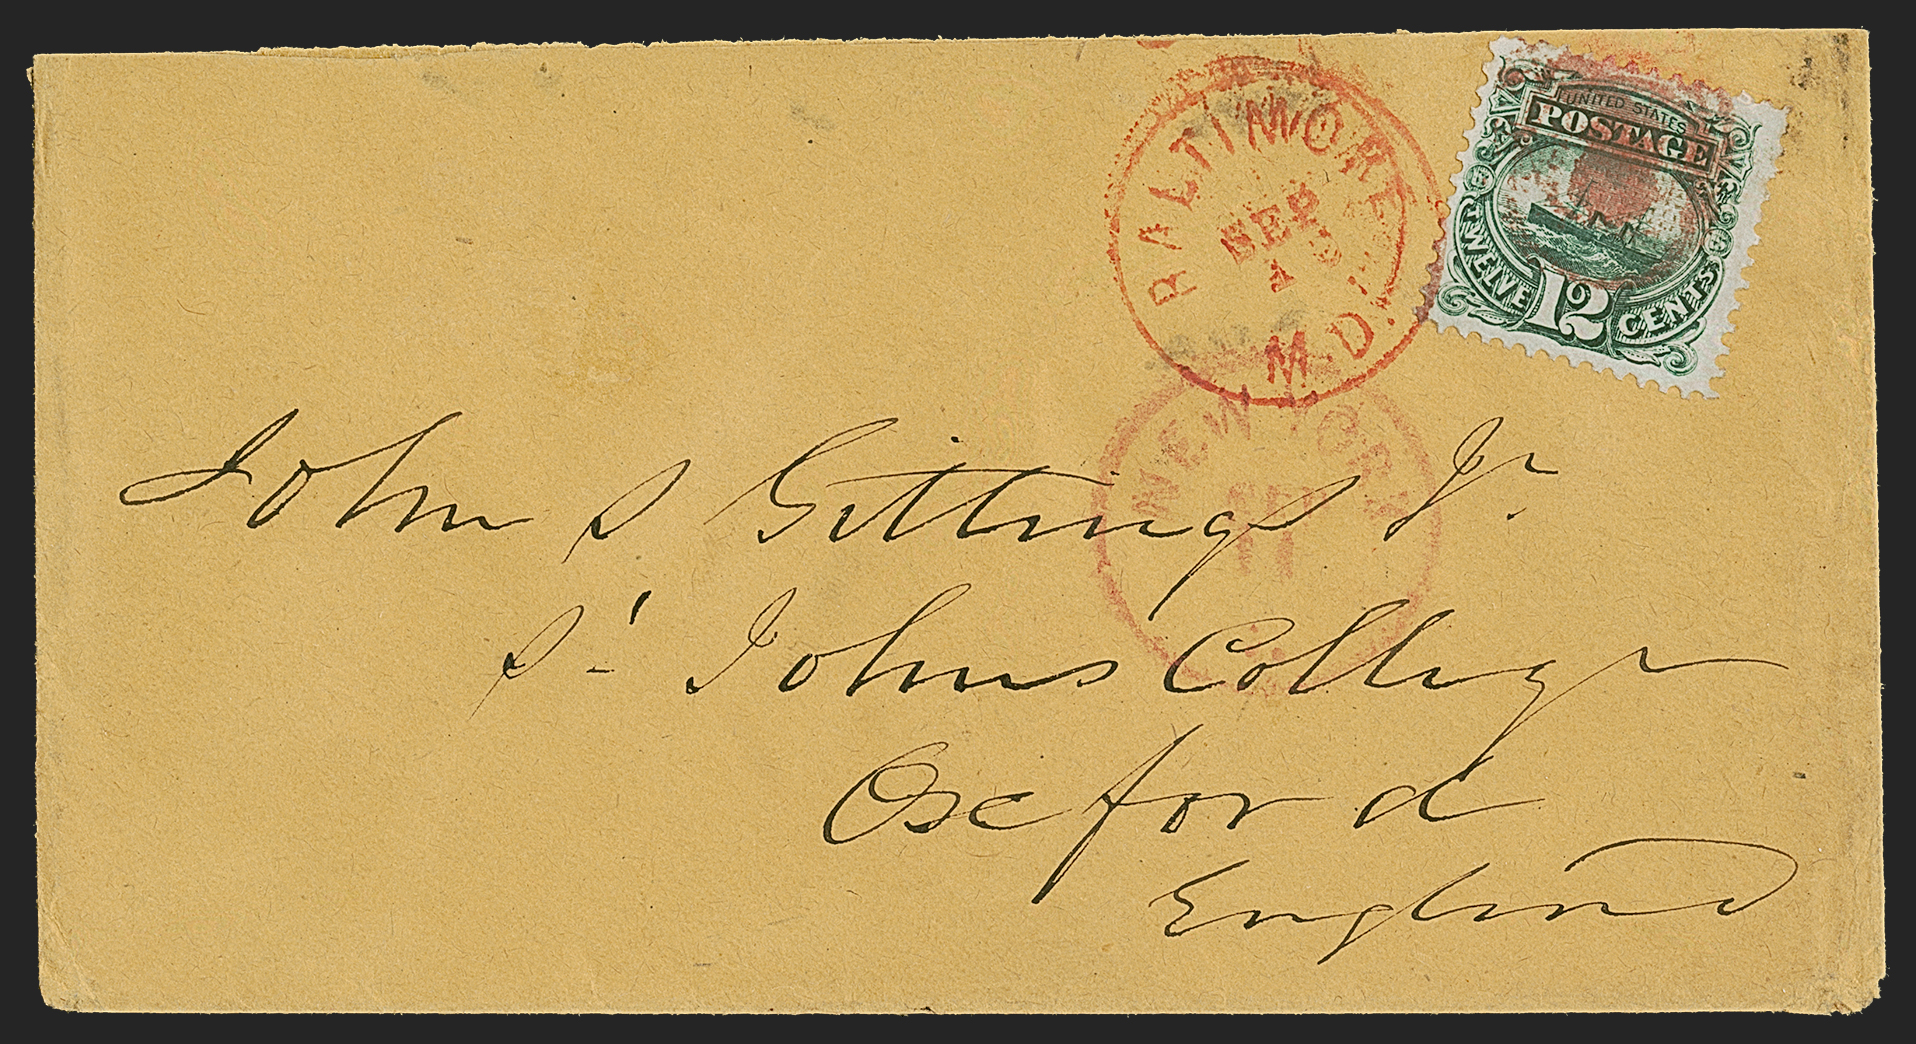 BALTIMORE
SEP
M.D.
UNITED STATES
POSTAGE
TWELVE 12 CENTS
NEW YORK
SEP
11
John S Gittings Jr.
St Johns College
Oxford
England